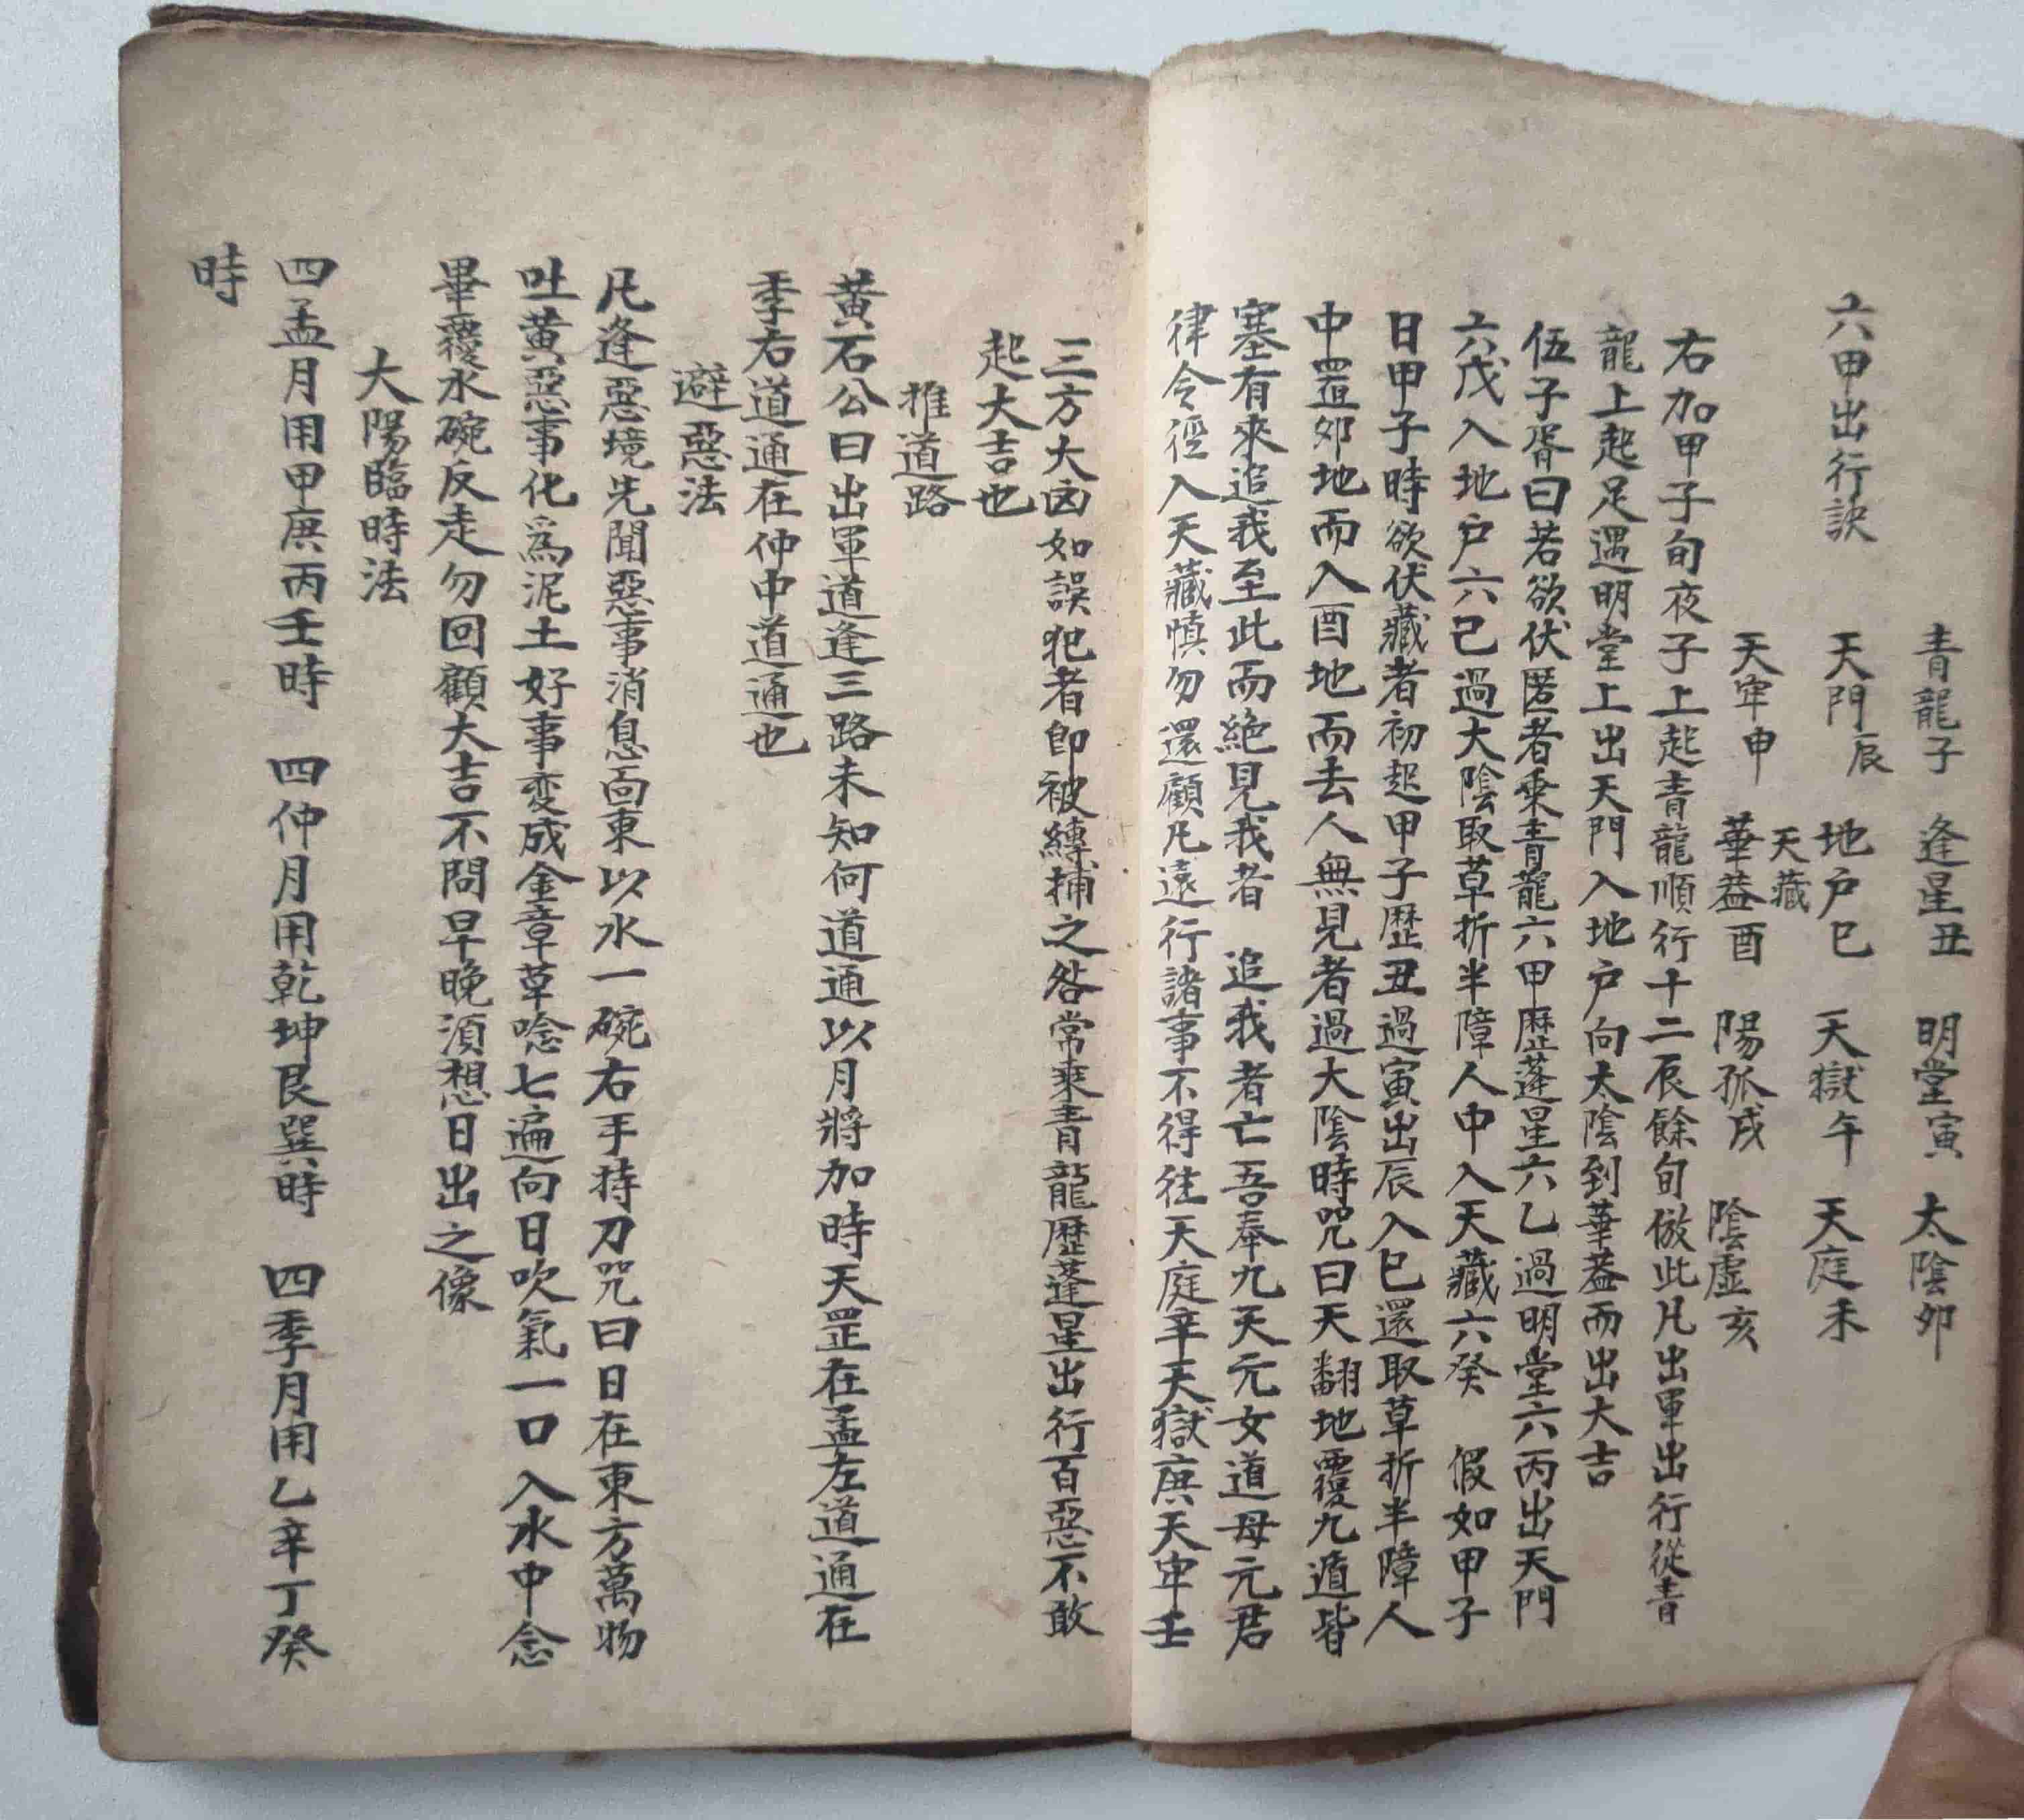 青龍子　逢星丑　明堂寅　太陰卯
六甲出行訣　天門辰　地户巳　天獄午　天庭未
天藏
天牢申　華蓋酉　陽孤戌　陰虛亥
右加甲子旬夜子上起青龍順行十二辰餘旬倣此凡出軍出行從青
龍上起足遇明堂上出天門入地户向太陰到華蓋而出大吉
伍子胥曰若欲伏匿者乗青龍六甲歷蓬星六乙過明堂六丙出天門
六戊入地户六己過大陰取草折半障人中入天藏六癸　假如甲子
日甲子時欲伏藏者初起甲子歷丑過寅出辰入巳還取草折半障人
中置卯地而入酉地而去人無見者過大陰時咒曰天翻地覆九道皆
塞有來追我至此而絶見我者　追我者亡吾奉九天元女道母元君
律令徑入天藏慎勿還顧凡遠行諸事不得往天庭辛天獄庚天牢壬
三方大凶如誤犯者即被縛捕之咎常乘青龍歷蓬星出行百惡不敢
起大吉也
推道路
黄石公曰出軍道逢三路未知何道通以月將加時天罡在孟左道通在
季右道通在仲中道通也
避惡法
凡逢惡境先聞惡事消息面東以水一碗右手持刀咒曰日在東方萬物
吐黄惡事化爲泥土好事変成金章草唸七遍向日吹氣一口入水中念
畢覆水碗反走勿回顧大吉不問早晚須想日出之像
大陽臨時法
四孟月用甲庚丙壬時　四仲月用乾坤艮巽時　四季月用乙辛丁癸
時